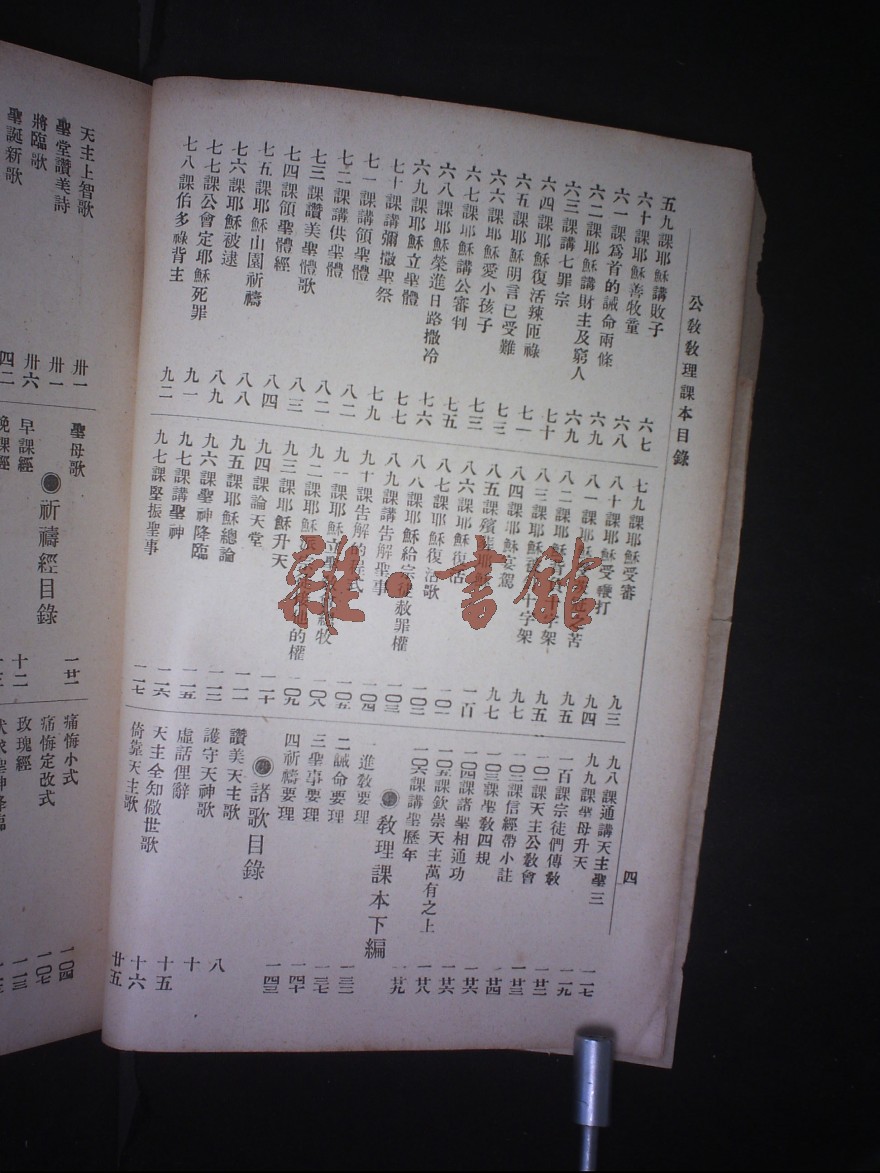 公敎敎理課本目錄
四
五九課耶穌講敗子 六七
六十課耶穌善牧童 六八
六一課爲首的誡命兩條 六九
六二課耶穌講財主及窮人 六九
六三課講七罪宗 七十
六四課耶穌復活辣匝祿 七一
六五課耶穌明言已受難 七三
六六課耶穌愛小孩子 七三
六七課耶穌講公審判 七五
六八課耶穌榮進日路撒冷 七六
六九課耶穌立聖體 七七
七十課講彌撒聖祭 七九
七一課講領聖體 八二
七二課講供聖體 八二
七三課讚美聖體歌 八三
七四課領聖體經 八四
七五課耶穌山園祈禱 八八
七六課耶穌被逮 八九
七七課公會定耶穌死罪 九一
七八課伯多祿背主 九二
七九課耶穌受審 九三
八十課耶穌受鞭打 九四
八一課耶穌 苦 九五
八二課耶穌 十字架 九五
八三課耶穌 十字架 九七
八四課耶穌宴駕 九七
八五課殯葬耶穌 一百
八六課耶穌復活 一〇一
八七課耶穌復活歌 一〇二
八八課耶穌給宗徒赦罪權 一〇三
八九課講告解聖事 一〇四
九十課告解的程式 一〇五
九一課耶穌立聖 總牧 一〇八
九二課耶穌 他的權 一〇九
九三課耶穌升天 一一十
九四課論天堂 一一一
九五課耶穌總論 一一三
九六課聖神降臨 一一五
九七課講聖神 一一六
九七課堅振聖事 一一七
九八課通講天主聖三 一一七
九九課聖母升天 一一九
一百課宗徒們傳敎 一廿二
一〇二課天主公敎會 一廿三
一〇三課信經帶小註 一廿四
一〇三課聖敎四規 一廿六
一〇四課諸聖相通功 一廿六
一〇五課欽崇天主萬有之上 一廿八
一〇六課講聖歷年 一廿九
敎理課本下編
一進敎要理 一三二
二誡命要理 一三七
三聖事要理 一四十
四祈禱要理 一四三
諸歌目錄
讚美天主歌 八
護守天神歌 十
虛話俚辭 十五
天主全知儆世歌 十六
倚靠天主歌 廿五
天主上智歌 卅一
聖堂讚美詩 卅一
將臨歌 卅六
聖誕新歌 四二
聖母歌 一廿一
祈禱經目錄
早課經 十二
晚課經
痛悔小式 一〇四
痛悔定改式 一〇七
玫瑰經 一一三
伏求聖神降臨
雜·書館